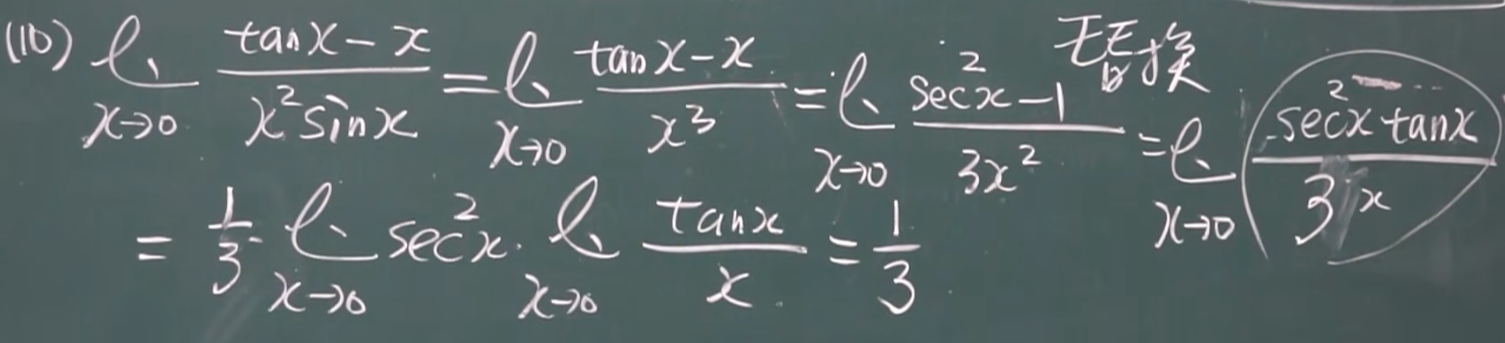 (10) lim_{x→0} \frac{tanx-x}{x^2 sinx} = lim_{x→0} \frac{tanx-x}{x^3} = lim_{x→0} \frac{sec^2x-1}{3x^2} 替换 = lim_{x→0} \frac{sec^2x tanx}{3x}
= \frac{1}{3} lim_{x→0} sec^2x · lim_{x→0} \frac{tanx}{x} = \frac{1}{3}